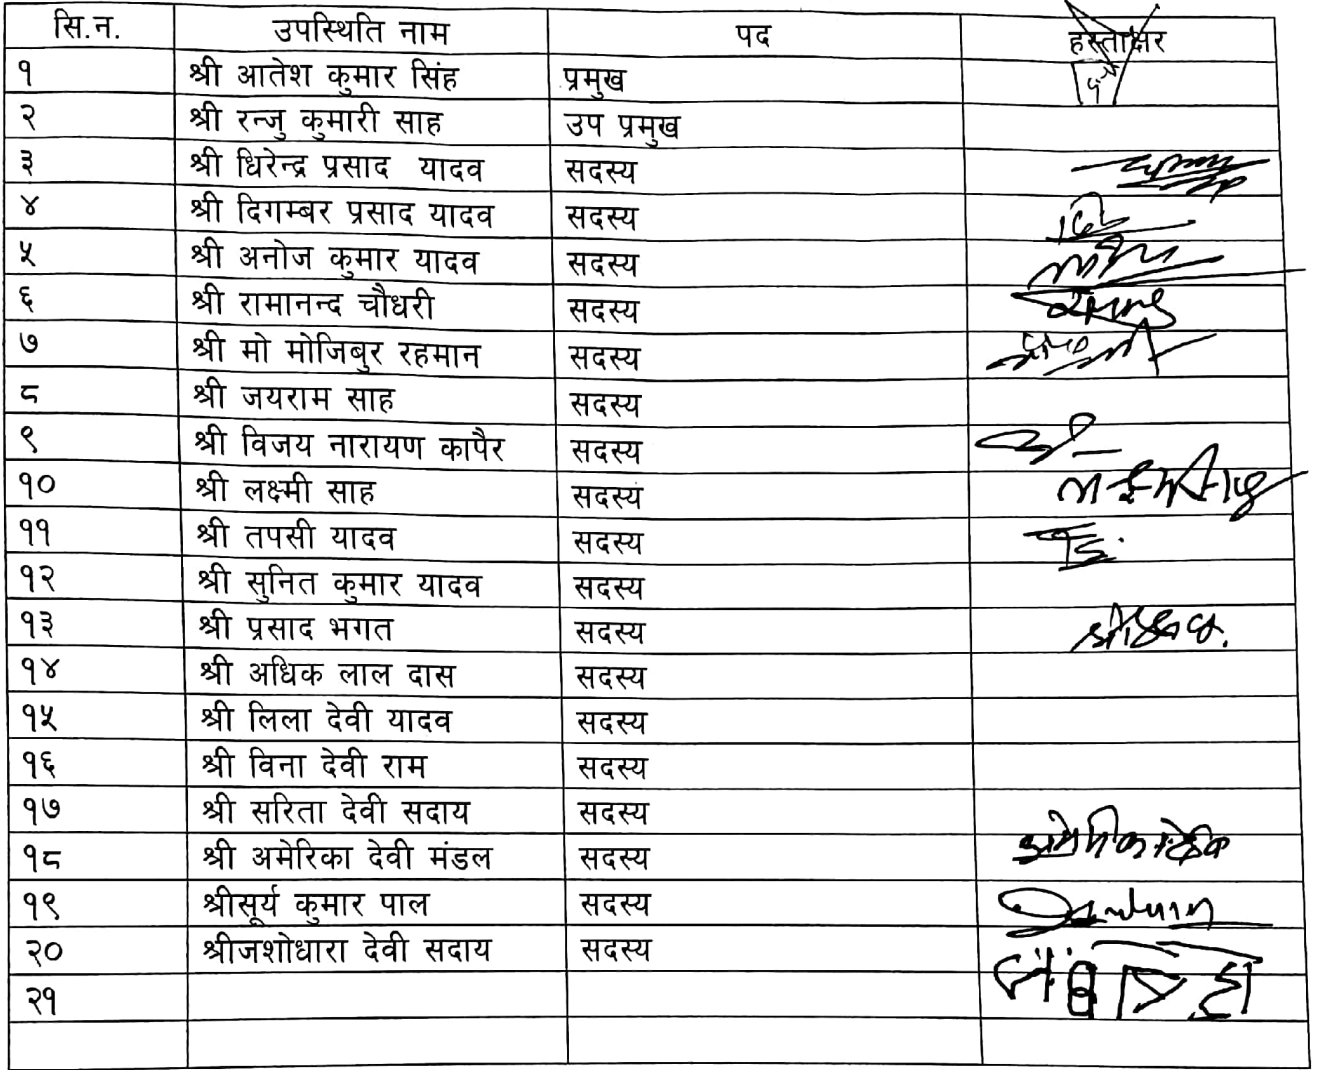 सि.न. उपस्थिति नाम पद हस्ताक्षर
१ श्री आतेश कुमार सिंह प्रमुख
२ श्री रन्जु कुमारी साह उप प्रमुख
३ श्री धिरेन्द्र प्रसाद यादव सदस्य
४ श्री दिगम्बर प्रसाद यादव सदस्य
५ श्री अनोज कुमार यादव सदस्य
६ श्री रामानन्द चौधरी सदस्य
७ श्री मो मोजिबुर रहमान सदस्य
८ श्री जयराम साह सदस्य
९ श्री विजय नारायण कापैर सदस्य
१० श्री लक्ष्मी साह सदस्य
११ श्री तपसी यादव सदस्य
१२ श्री सुनित कुमार यादव सदस्य
१३ श्री प्रसाद भगत सदस्य
१४ श्री अधिक लाल दास सदस्य
१५ श्री लिला देवी यादव सदस्य
१६ श्री विना देवी राम सदस्य
१७ श्री सरिता देवी सदाय सदस्य
१८ श्री अमेरिका देवी मंडल सदस्य
१९ श्रीसूर्य कुमार पाल सदस्य
२० श्रीजशोधारा देवी सदाय सदस्य
२१